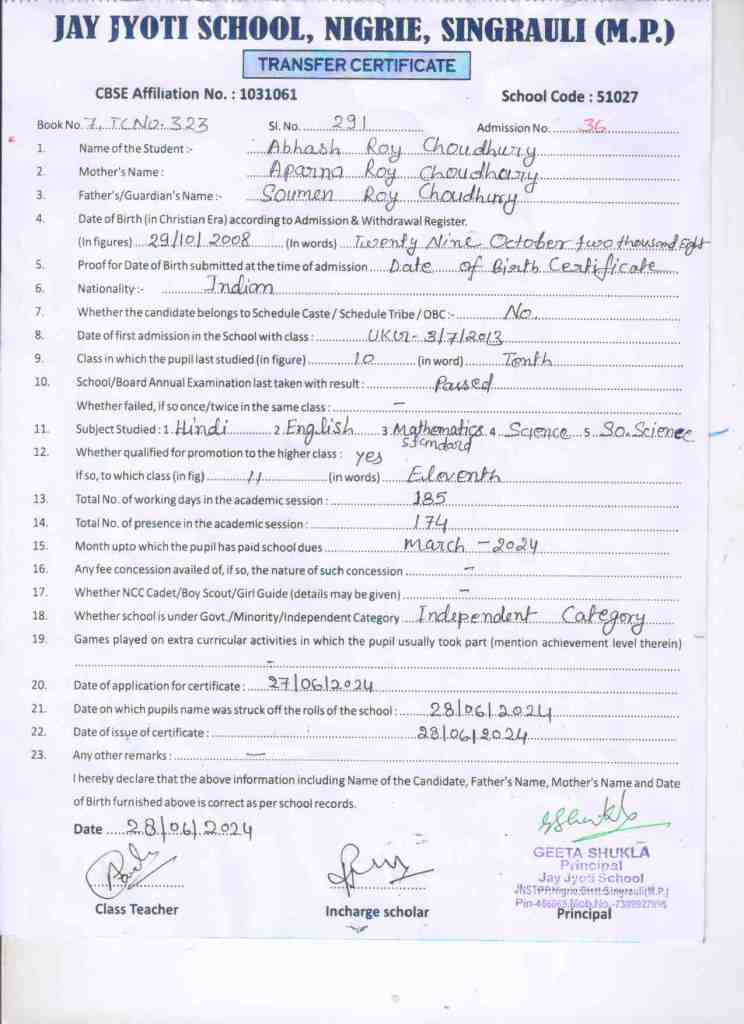 JAY JYOTI SCHOOL, NIGRIE, SINGRAULI (M.P.)
TRANSFER CERTIFICATE
CBSE Affiliation No. : 1031061 School Code : 51027
Book No. 7, TC No. 323 Sl. No. 291 Admission No. 36
1. Name of the Student :- Abhash Roy Choudhury
2. Mother's Name : Aparna Roy Choudhary
3. Father's/Guardian's Name :- Soumen Roy Choudhury
4. Date of Birth (in Christian Era) according to Admission & Withdrawal Register.
(In figures) 29/10/2008 (In words) Twenty Nine October two thousand Eight
5. Proof for Date of Birth submitted at the time of admission Date of Birth Certificate
6. Nationality :- Indian
7. Whether the candidate belongs to Schedule Caste / Schedule Tribe / OBC :- No.
8. Date of first admission in the School with class : UKG- 3/7/2013
9. Class in which the pupil last studied (in figure) 10 (in word) Tenth
10. School/Board Annual Examination last taken with result : Passed
Whether failed, if so once/twice in the same class : -
11. Subject Studied : 1. Hindi 2. English 3. Mathematics 4. Science 5. So. Science
Standard
12. Whether qualified for promotion to the higher class : yes
If so, to which class (in fig) 11 (in words) Eleventh
13. Total No. of working days in the academic session : 185
14. Total No. of presence in the academic session : 174
15. Month upto which the pupil has paid school dues March - 2024
16. Any fee concession availed of, if so, the nature of such concession -
17. Whether NCC Cadet/Boy Scout/Girl Guide (details may be given) -
18. Whether school is under Govt./Minority/Independent Category Independent Category
19. Games played on extra curricular activities in which the pupil usually took part (mention achievement level therein)
-
20. Date of application for certificate : 27/06/2024
21. Date on which pupils name was struck off the rolls of the school : 28/06/2024
22. Date of issue of certificate : 28/06/2024
23. Any other remarks : -
I hereby declare that the above information including Name of the Candidate, Father's Name, Mother's Name and Date
of Birth furnished above is correct as per school records.
Date 28/06/2024
GShukla
GEETA SHUKLA
Principal
Jay Jyoti School
JNSTPP Nigrie Distt-Singrauli (M.P.)
Class Teacher Incharge scholar Principal